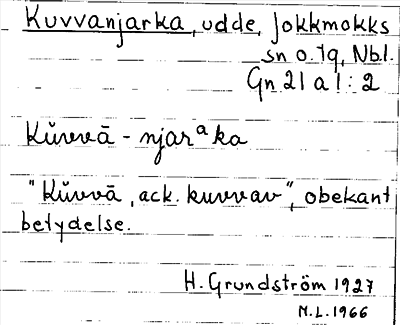 Kuvvanjarka, udde, Jokkmokks
sn o. lq, Nbl.
Gn 21 a 1:2
Kŭvvā - njarᵃka
"Kŭvvā, ack. kuvvav", obekant
betydelse.
H. Grundström 1927
M.L. 1966